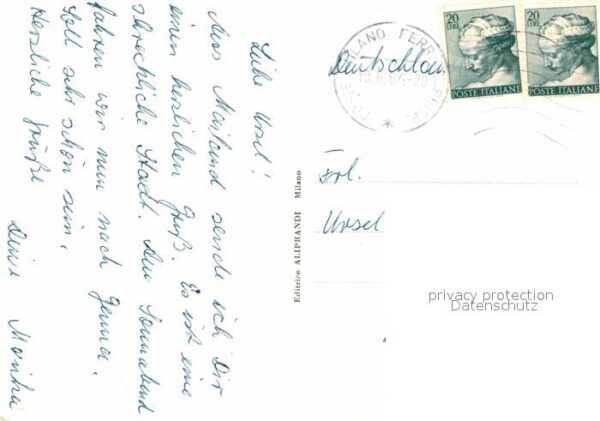 Liebe Ursel!
Aus Mailand sende ich Dir
einen herzlichen Gruß. Es ist eine
schreckliche Stadt. Am Sonnabend
fahren wir nun nach Genua.
Soll sehr schön sein.
Herzliche Grüße
Deine Monika
Editrice ALIPRANDI Milano
POSTE MILANO FERR
Deutschland
20
LIRE
POSTE ITALIANE
20
LIRE
POSTE ITALIANE
Frl.
Ursel
privacy protection
Datenschutz